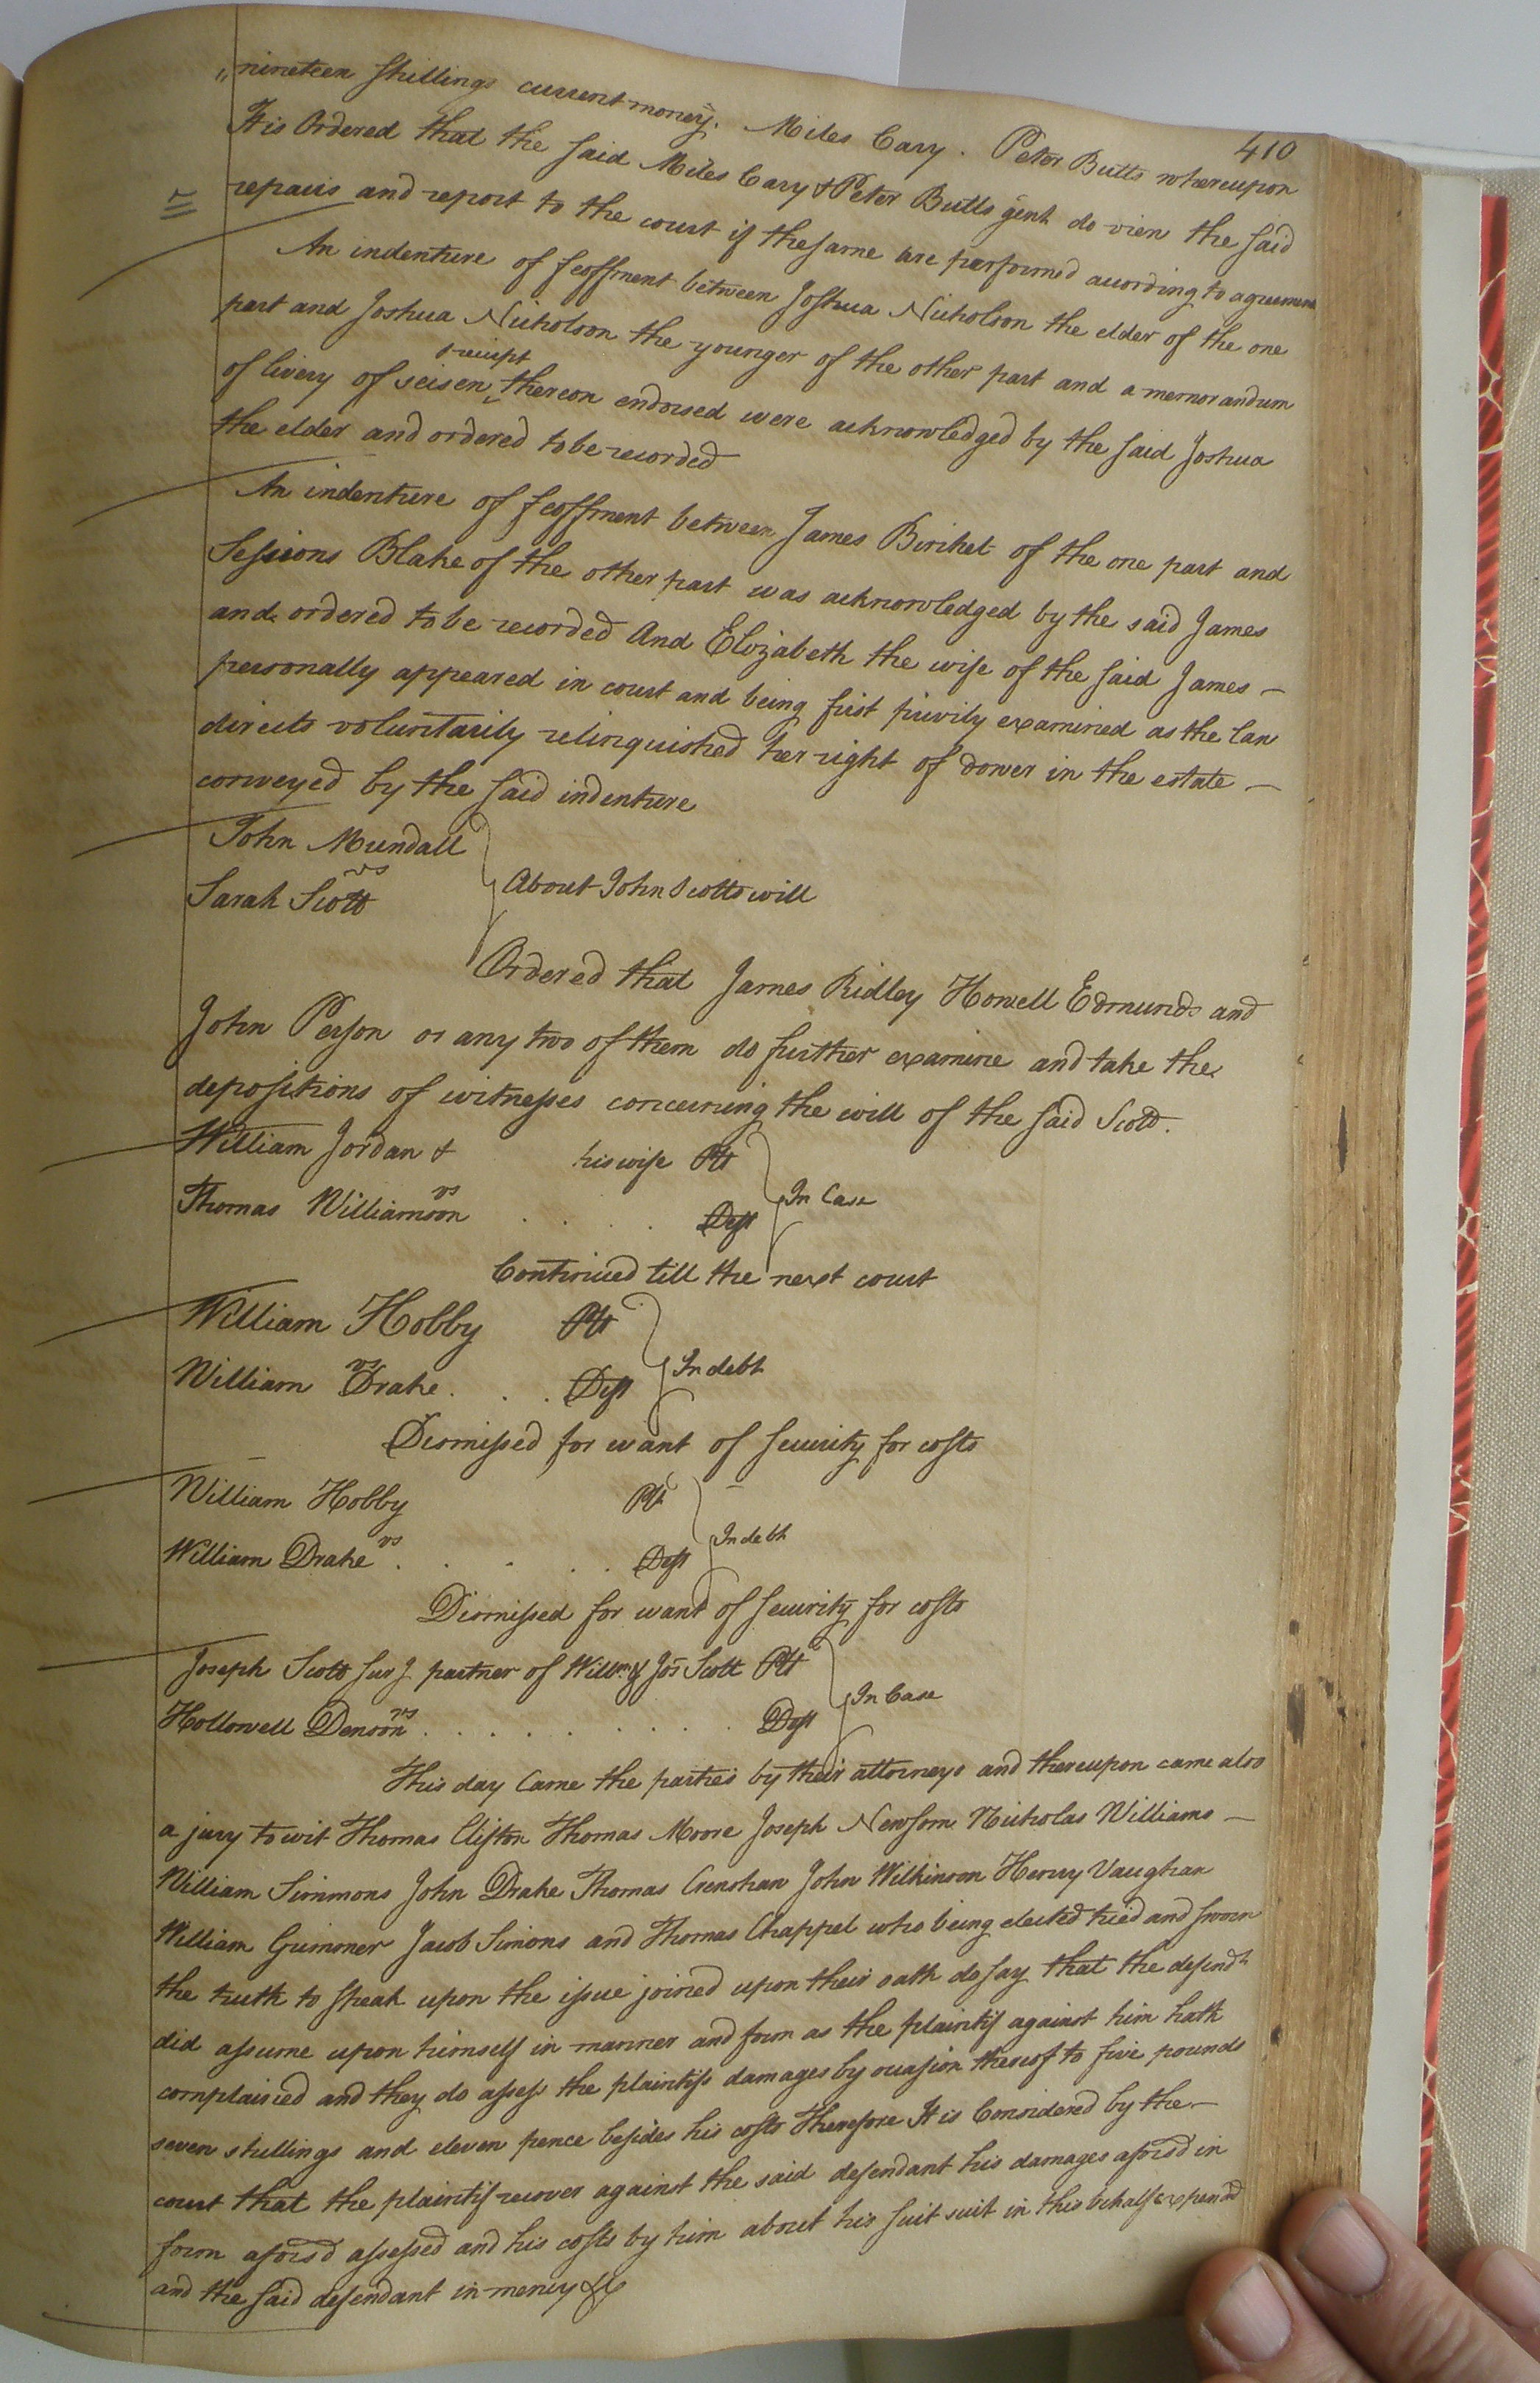 410
"nineteen shillings current money. Miles Cary. Peter Butts whereupon
It is Ordered that the said Miles Cary & Peter Butts gent. do view the said
repairs and report to the court if the same are performed acording to agreement
An indenture of feoffment between Joshua Nicholson the elder of the one
part and Joshua Nicholson the younger of the other part and a memorandum
& reciept
of livery of seisen thereon endorsed were acknowledged by the said Joshua
the elder and ordered to be recorded
An indenture of feoffment between James Birihet of the one part and
Sessions Blake of the other part was acknowledged by the said James
and ordered to be recorded And Elizabeth the wife of the said James —
personally appeared in court and being first privily examined as the law
directs voluntarily relinquished her right of dower in the estate —
conveyed by the said indenture
John Mundall
vs
Sarah Scott
About John Scotts will
Ordered that James Ridley Howell Edmunds and
John Person or any two of them do further examine and take the
depositions of witnesses concerning the will of the said Scott.
William Jordan & his wife Plt
vs
Thomas Williamson . . . . Deft
In Case
Continued till the next court
William Hobby Plt
vs
William Drake . . . Deft
In debt
Dismissed for want of security for costs
William Hobby Plt
vs
William Drake . . . . . Deft
In debt
Dismissed for want of security for costs
Joseph Scott Surg. partner of Willm. & Jos Scott Plt
vs
Hollowell Denson . . . . . . . . . Deft
In Case
This day Came the parties by their attorneys and thereupon came also
a jury to wit Thomas Clifton Thomas Moore Joseph Newsom Nicholas Williams —
William Simmons John Drake Thomas Crenshaw John Wilkinson Henry Vaughan
William Grimmer Jacob Simons and Thomas Chappel who being elected tried and sworn
the truth to speak upon the issue joined upon their oath do say that the defendt
did assume upon himself in manner and form as the plaintif against him hath
complained and they do assess the plaintifs damages by ocasion thereof to five pounds
seven shillings and eleven pence besides his costs Therefore It is Considered by the —
court that the plaintif recover against the said defendant his damages aforsd in
form aforsd assessed and his costs by him about his suit suit in this behalf expended
and the said defendant in mercy &c